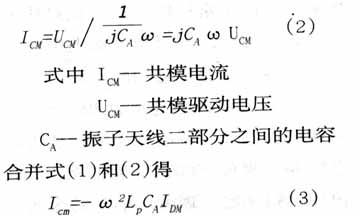 I_CM=U_CM / 1/jC_A ω =jC_A ω U_CM (2)
式中 I_CM—共模电流
U_CM—共模驱动电压
C_A—振子天线二部分之间的电容
合并式(1)和(2)得
I_cm=-ω²L_pC_AI_DM (3)